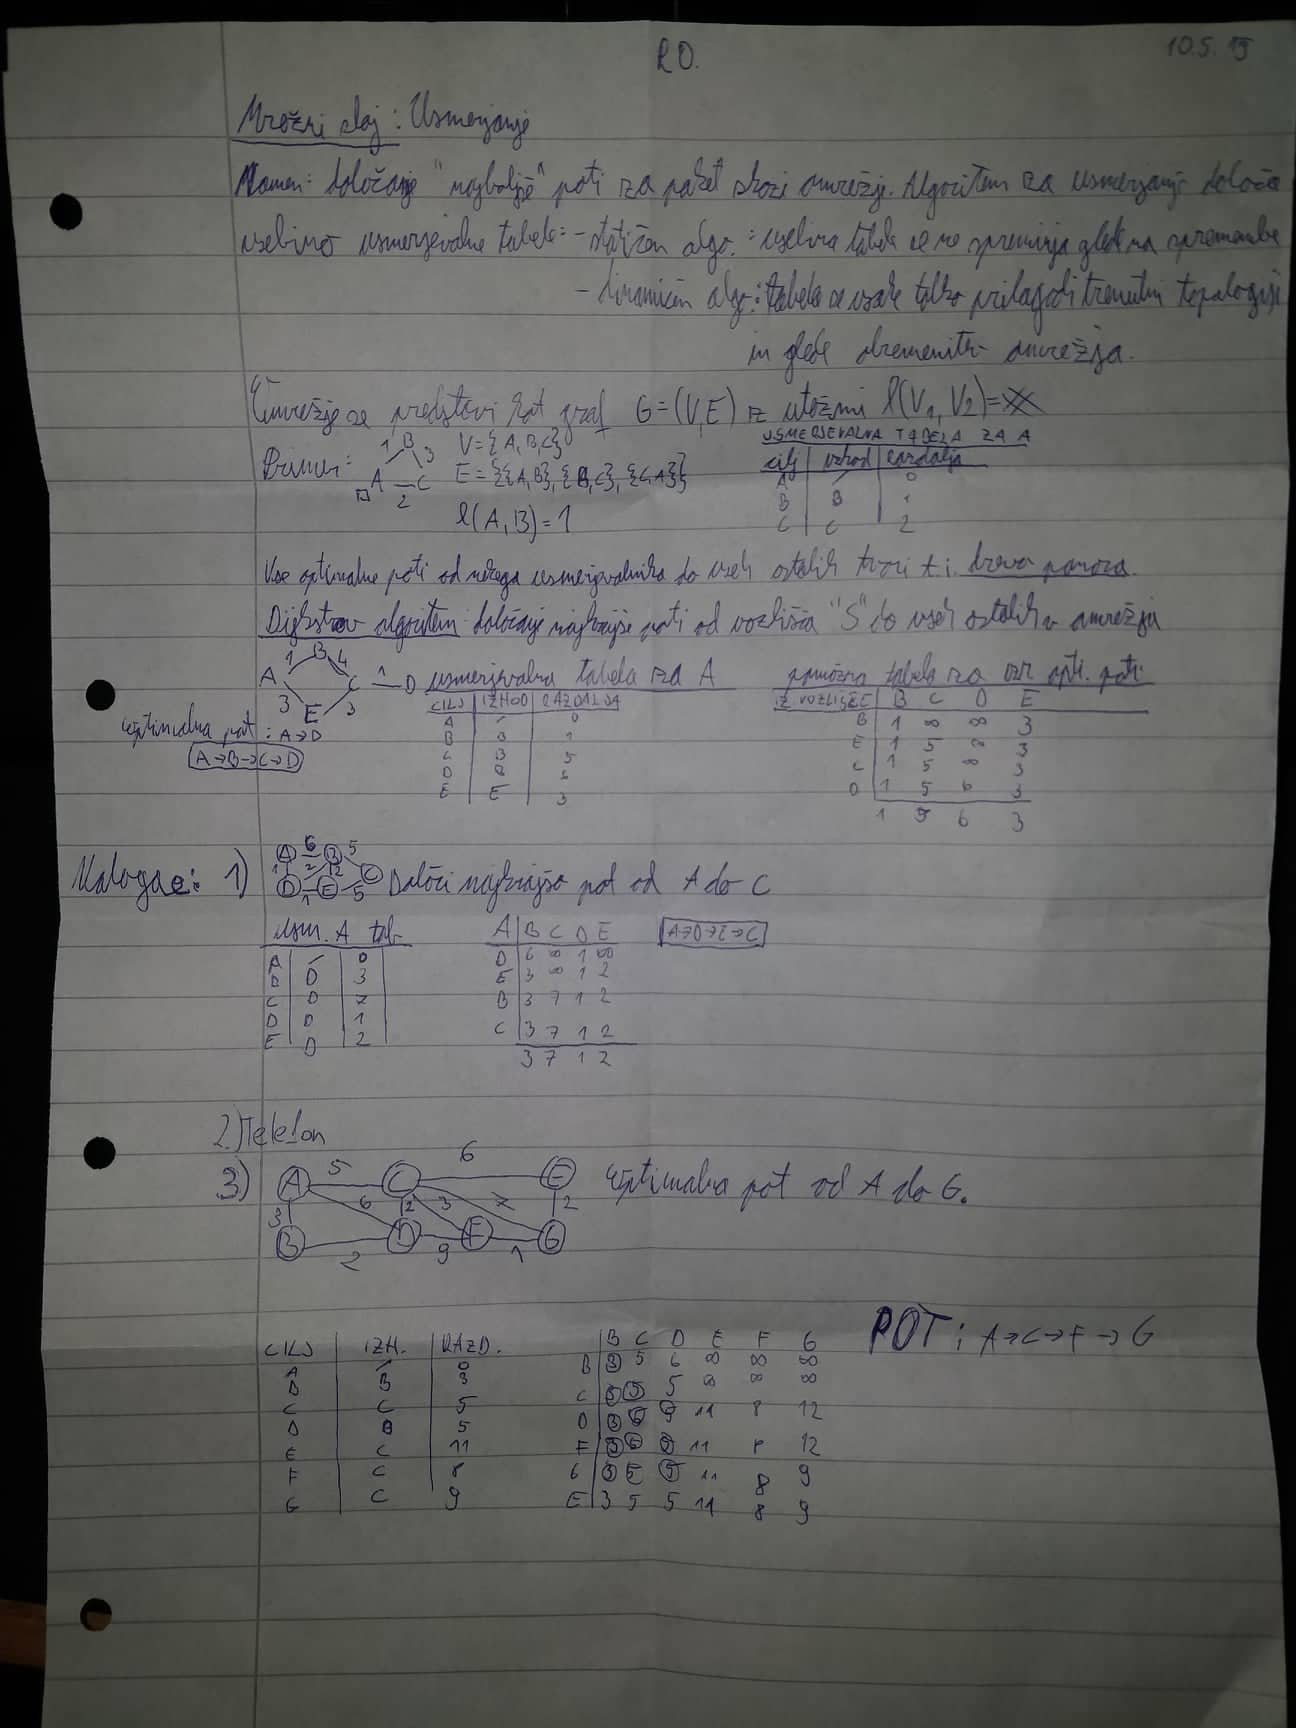 RO.
10.5.19
Mrežni sloj: Usmerjanje
Namen: določanje "najboljše" poti za paket skozi omrežje. Algoritem za usmerjanje določa
vsebino usmerjevalne tabele: - statičen algo.: vsebina tabele se ne spreminja glede na spremembe
- dinamičen algo.: tabela se vsake tolko prilagodi trenutni topologiji
in glede obremenitev omrežja.
Omrežje se predstavi kot graf G=(V,E) z utežmi l(V1, V2)=
Primer:
A B C
1 3 2
V={A,B,C}
E={{A,B},{B,C},{C,A}}
l(A,B)=1
USMERJEVALNA TABELA ZA A
cilj izhod razdalja
A / 0
B B 1
C C 2
Vse optimalne poti od nekega usmerjevalnika do vseh ostalih tvori t.i. drevo ponora.
Dijkstrov algoritem: določanje najkrajše poti od vozlišča "S" do vseh ostalih v omrežju
A B C D E
1 4 1 3 3
optimalna pot: A→D
A→B→C→D
usmerjevalna tabela za A
CILJ IZHOD RAZDALJA
A / 0
B B 1
C B 5
D B 6
E E 3
pomožna tabela za izr. opti. poti:
IZ VOZLIŠČE B C D E
B 1 ∞ ∞ 3
E 1 5 ∞ 3
C 1 5 ∞ 3
D 1 5 6 3
1 5 6 3
Naloge: 1)
A 6 B 5
1 2 2 C
D 1 E 5
Določi najkrajšo pot od A do C
usm. A tab
A / 0
B D 3
C D 7
D D 1
E D 2
A B C D E
D 6 ∞ 1 ∞
E 3 ∞ 1 2
B 3 7 1 2
C 3 7 1 2
3 7 1 2
A→D→E→C
2.) Telefon
3)
A 5 C 6 E
3 6 2 3 7 2
B 2 D 9 F 1 G
Optimalna pot od A do G.
CILJ IZH. RAZD.
A / 0
B B 3
C C 5
D B 5
E C 11
F C 8
G C 9
B C D E F G
B 3 5 6 ∞ ∞ ∞
C 3 5 5 ∞ ∞ ∞
D 3 5 5 11 8 12
F 3 5 5 11 8 12
G 3 5 5 11 8 9
E 3 5 5 11 8 9
POT: A→C→F→G